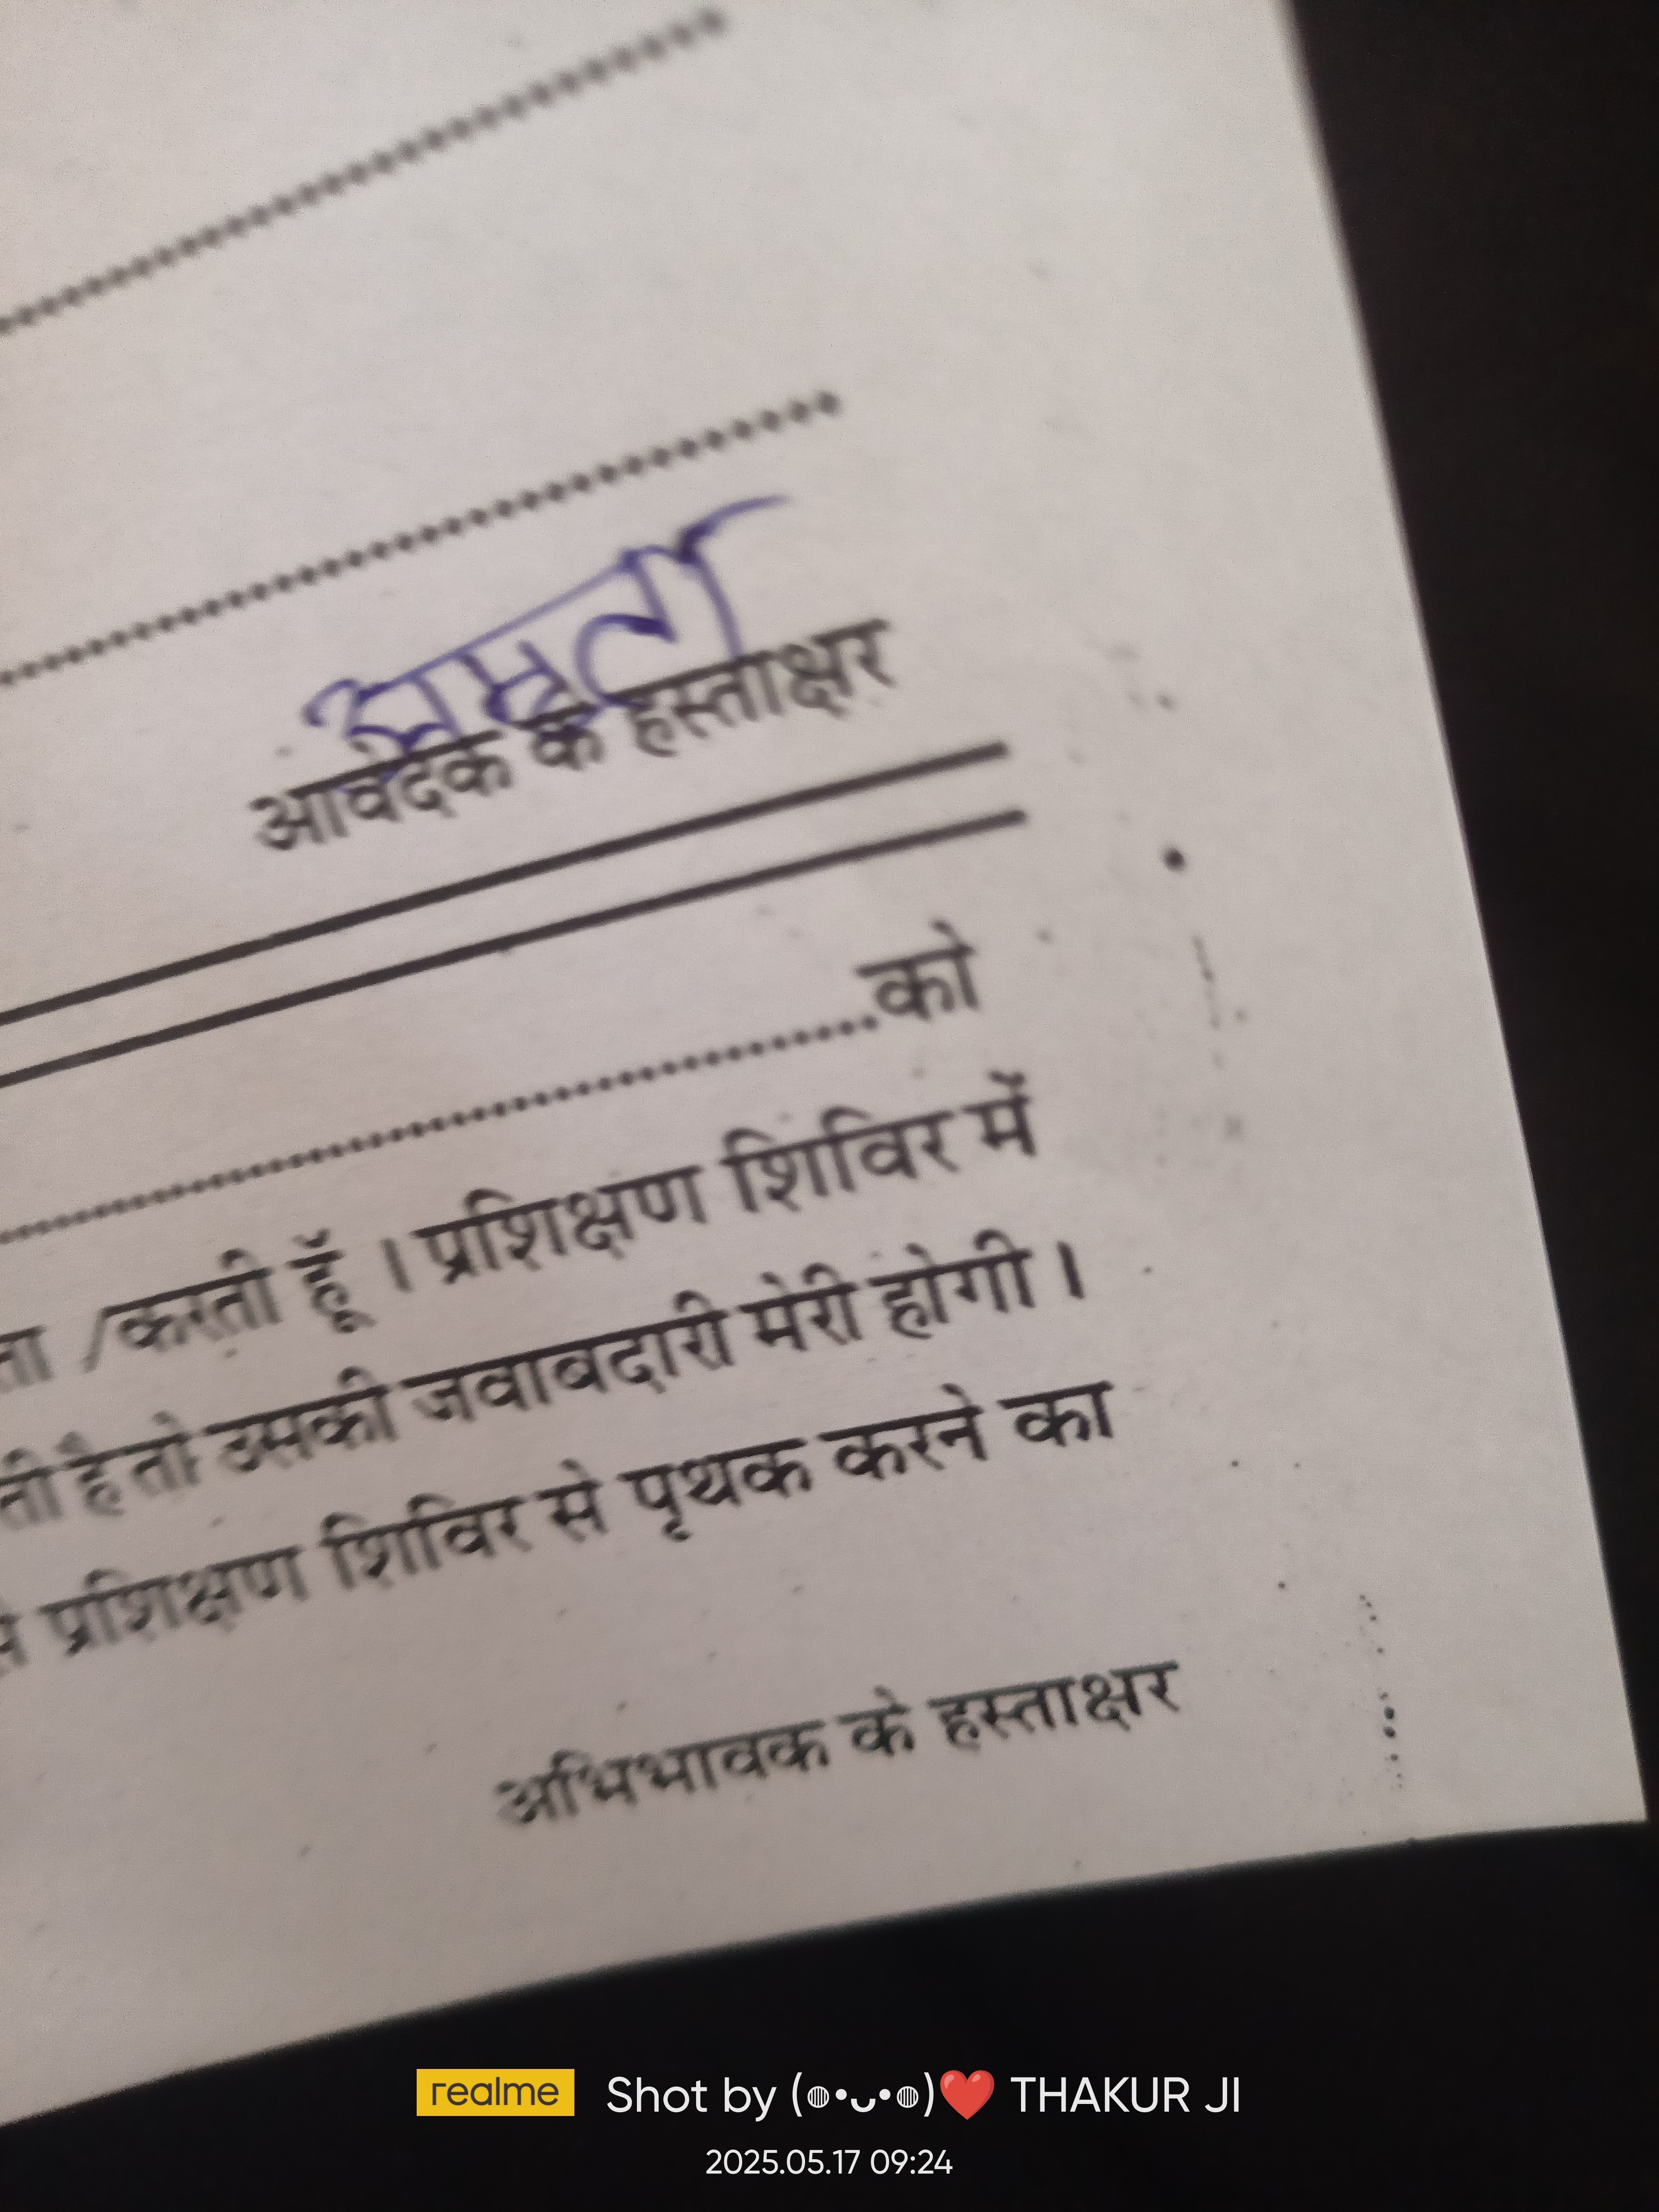 आवेदक के हस्ताक्षर
को
/करती हूँ । प्रशिक्षण शिविर में
है तो उसकी जवाबदारी मेरी होगी ।
प्रशिक्षण शिविर से पृथक करने का
अभिभावक के हस्ताक्षर
realme Shot by (◍•ᴗ•◍)❤️ THAKUR JI
2025.05.17 09:24